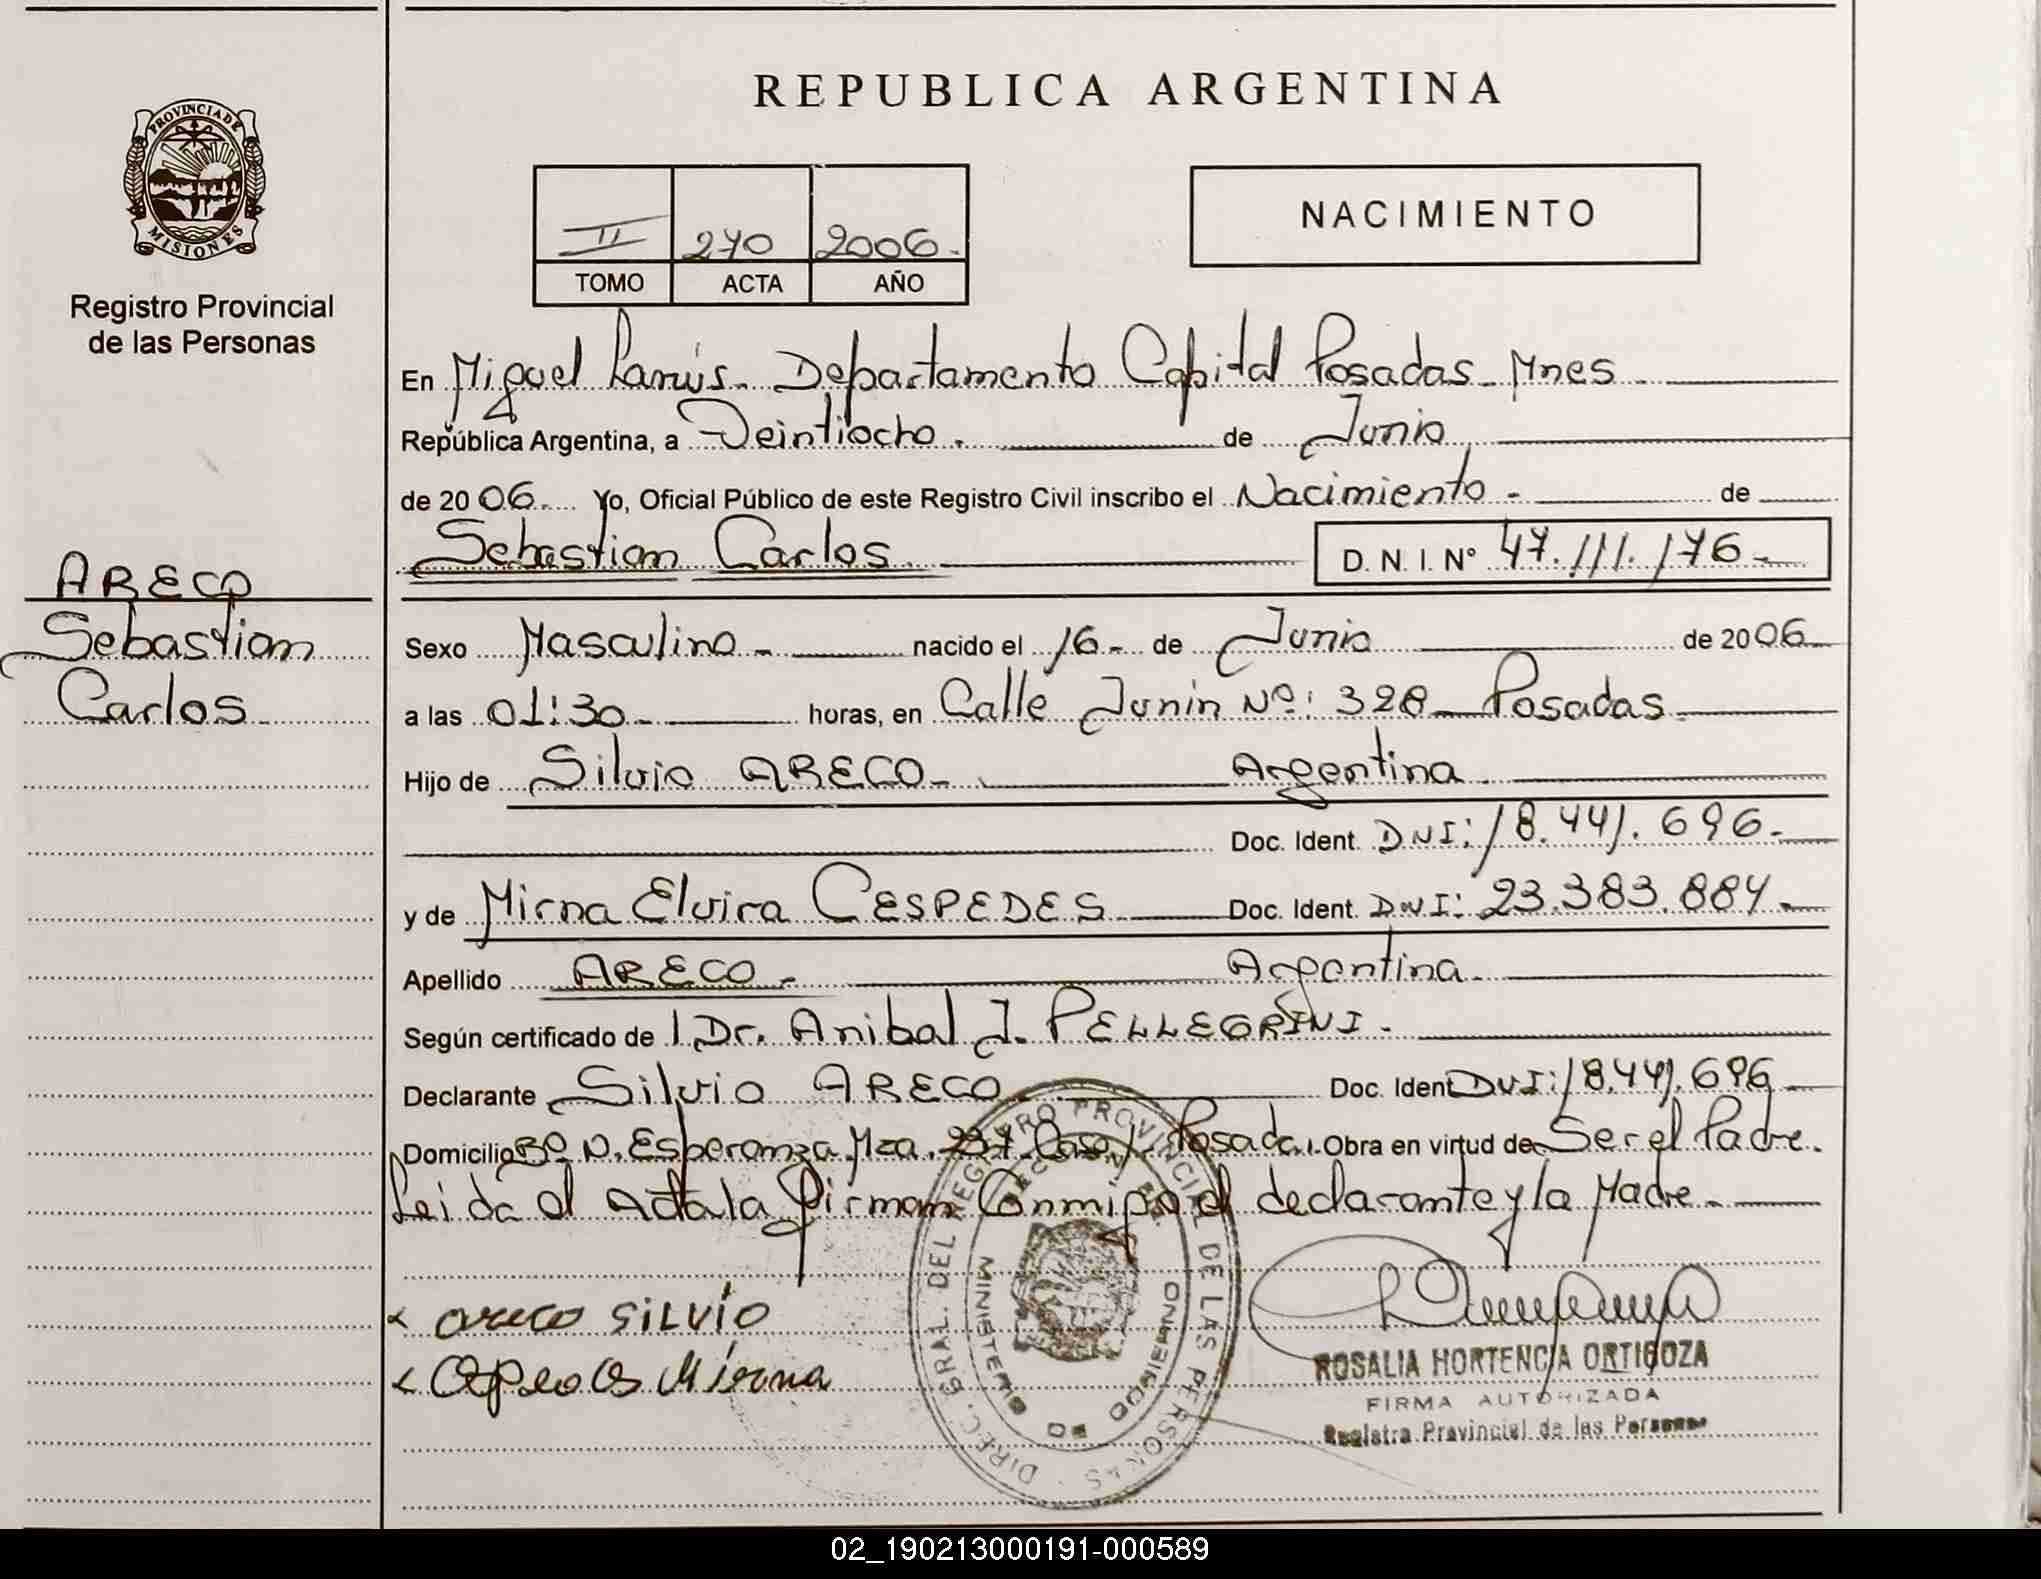 REPUBLICA ARGENTINA
PROVINCIA DE
MISIONES
Registro Provincial
de las Personas
II 270 2006.-
TOMO ACTA AÑO
NACIMIENTO
En Miguel Lanús. Departamento Capital Posadas Mnes
República Argentina, a Veintiocho. de Junio
de 2006. Yo, Oficial Público de este Registro Civil inscribo el Nacimiento - de
Sebastian Carlos D. N. I. Nº 47.111.176-
ARECO
Sebastian
Carlos
Sexo Masculino - nacido el 16- de Junio de 2006
a las 01:30 horas, en Calle Junin Nº: 328 Posadas
Hijo de Silvio ARECO- Argentina
Doc. Ident. DNI: 18.441.696.-
y de Mirna Elvira CESPEDES Doc. Ident. DNI: 23.383.884-
Apellido ARECO.- Argentina
Según certificado de Dr. Anibal J. PELLEGRINI.-
Declarante Silvio ARECO Doc. Iden DNI: 18.441.696
Domicilio Bº N. Esperanza Mza. 237 Casa Posadas. Obra en virtud de Ser el Padre.
Leida el Acta la firman Conmigo el declarante y la Madre.-
areco SILVIO
Cespedes Mirna
DIREC. GRAL. DEL REGISTRO PROVINCIAL DE LAS PERSONAS
MINISTERIO DE GOBIERNO
ROSALIA HORTENCIA ORTIGOZA
FIRMA AUTORIZADA
Registro Provincial de las Personas
02_190213000191-000589